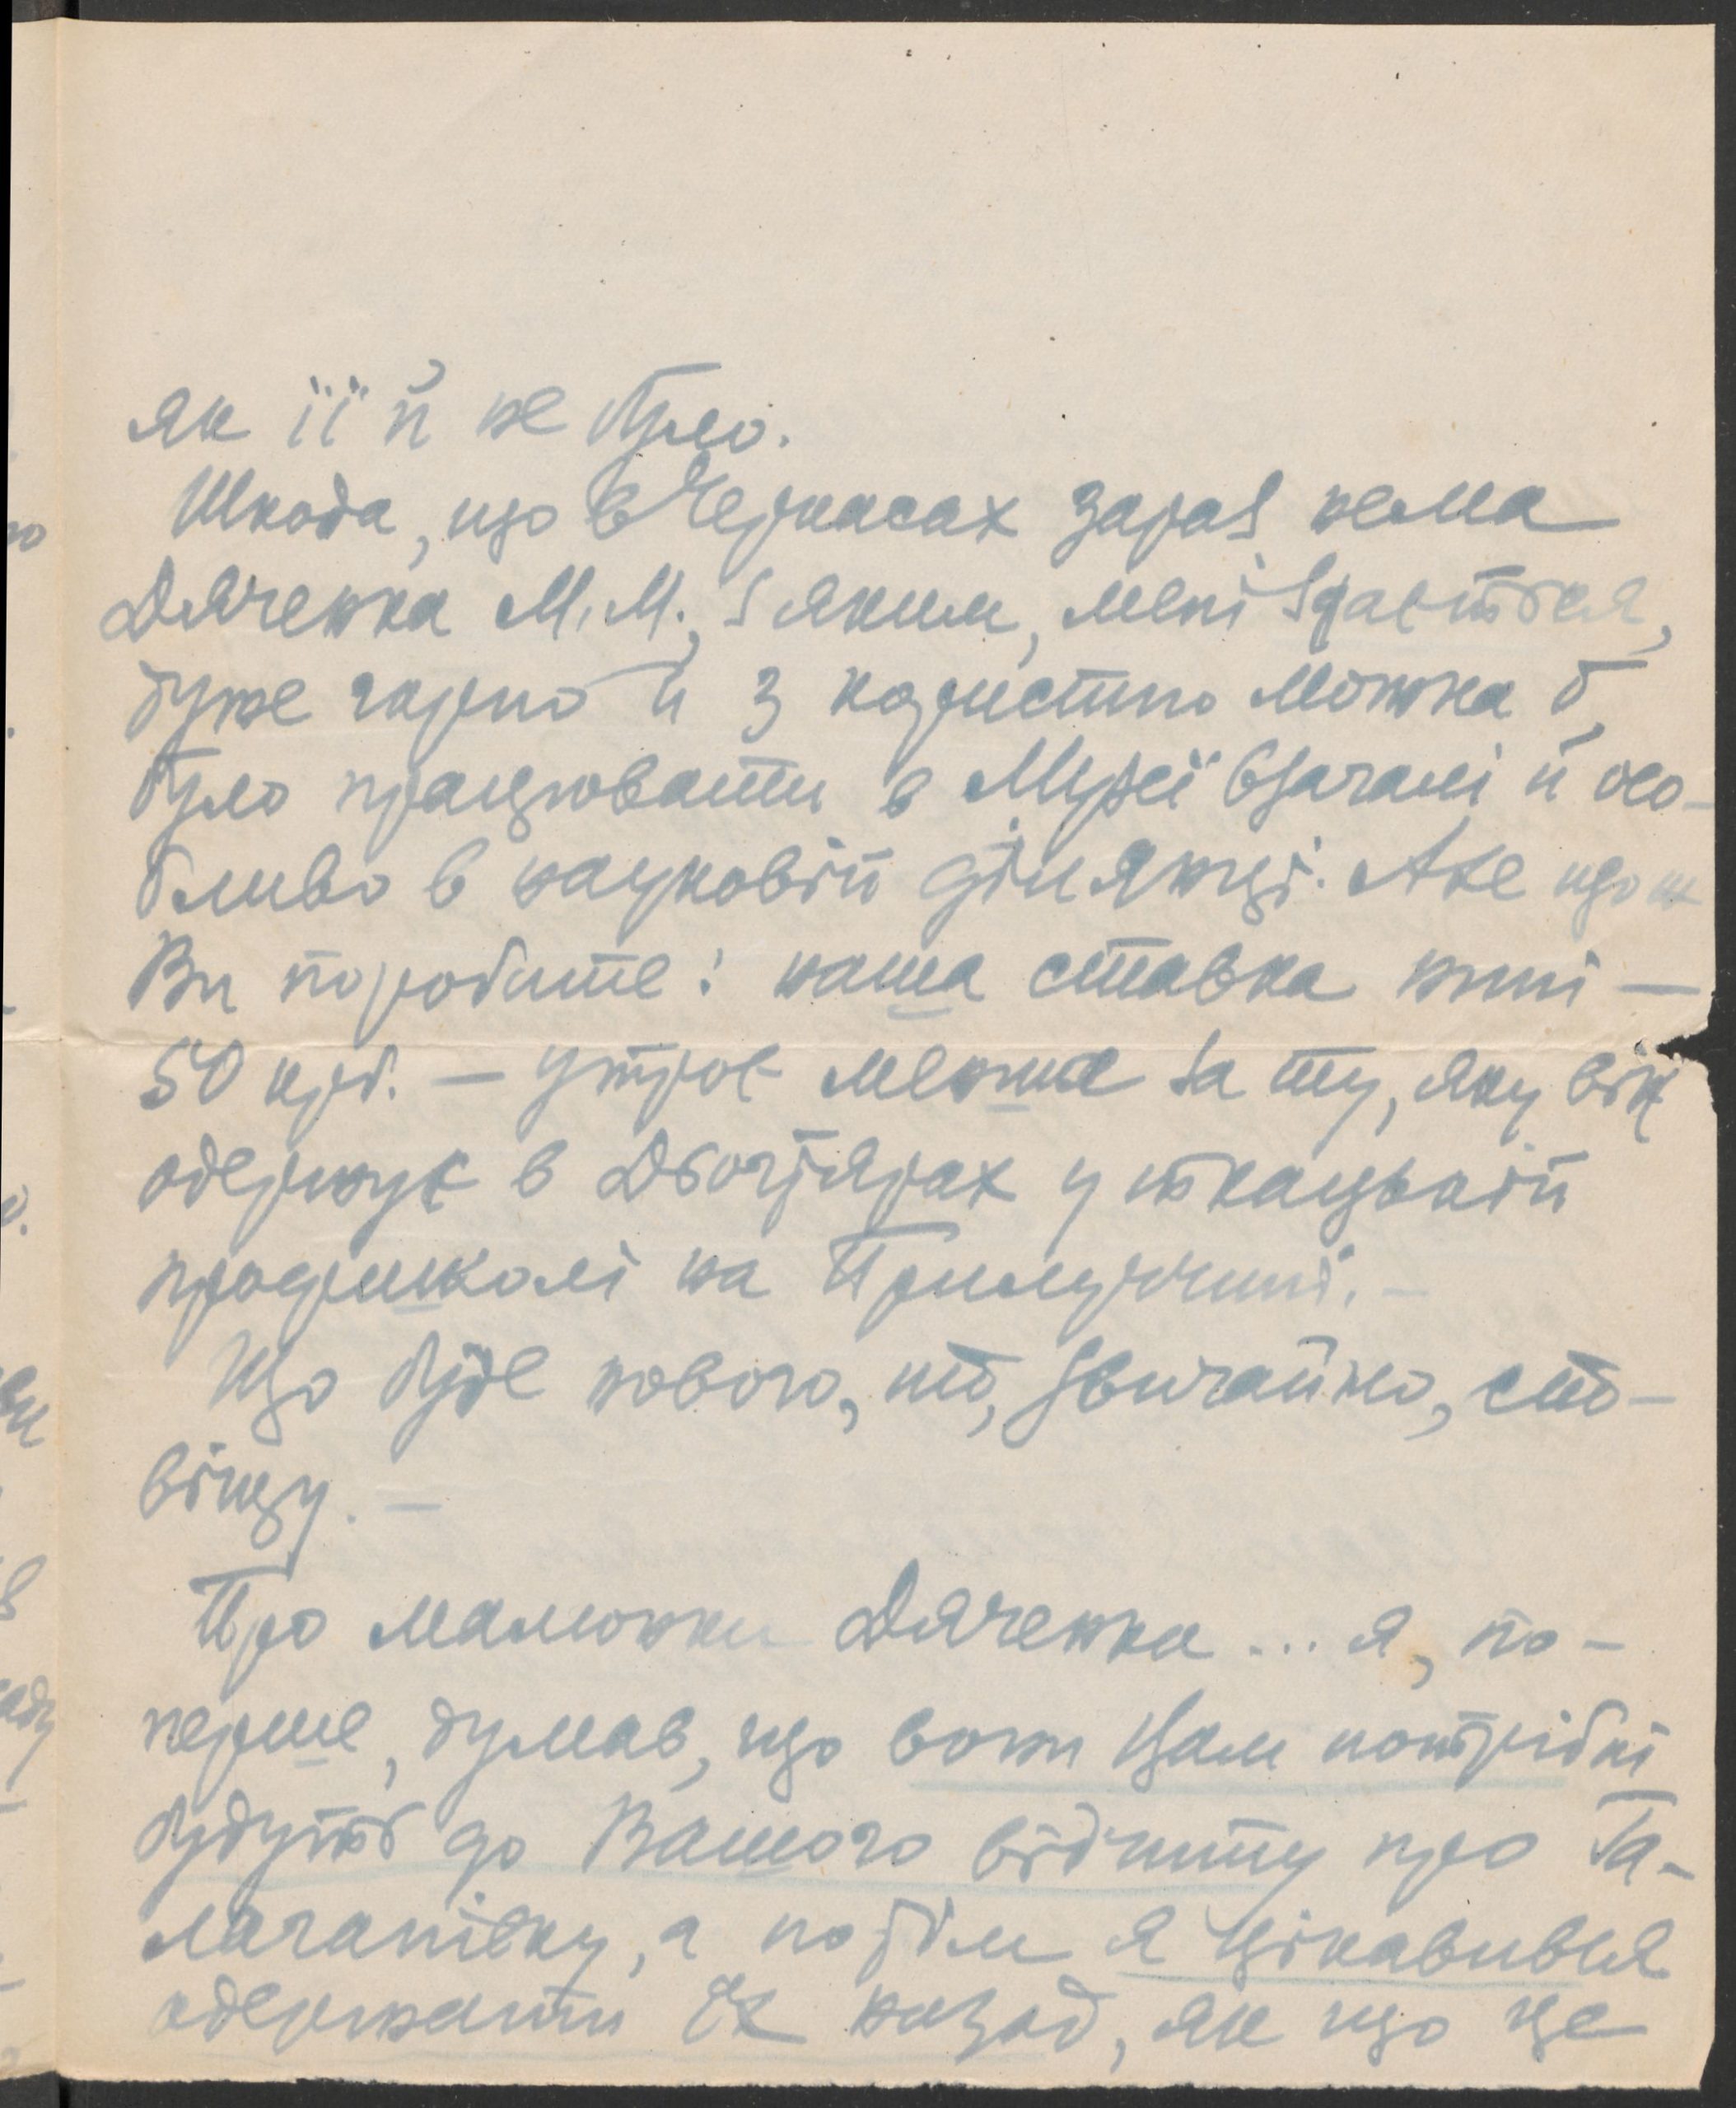 як її й не було.
Шкода, що в Черкасах зараз нема
Дяченка М.М., з яким, мені здається,
дуже гарно й з користю можна б
було працювати в Музеї взагалі й осо-
бливо в науковій ділянці. Але що ж
Ви поробите: наша ставка нині —
50 крб. — утроє менша за ту, яку він
одержує в Дігтярах у ткацькій
профшколі на Прилуччині. —
Що буде нового, то, звичайно, спо-
віщу. —
Про малюнки Дяченка... я, по-
перше, думав, що вони Вам потрібні
будуть до Вашого відчиту про Га-
лаганівку, а потім я цікавився
одержати їх назад, як що це